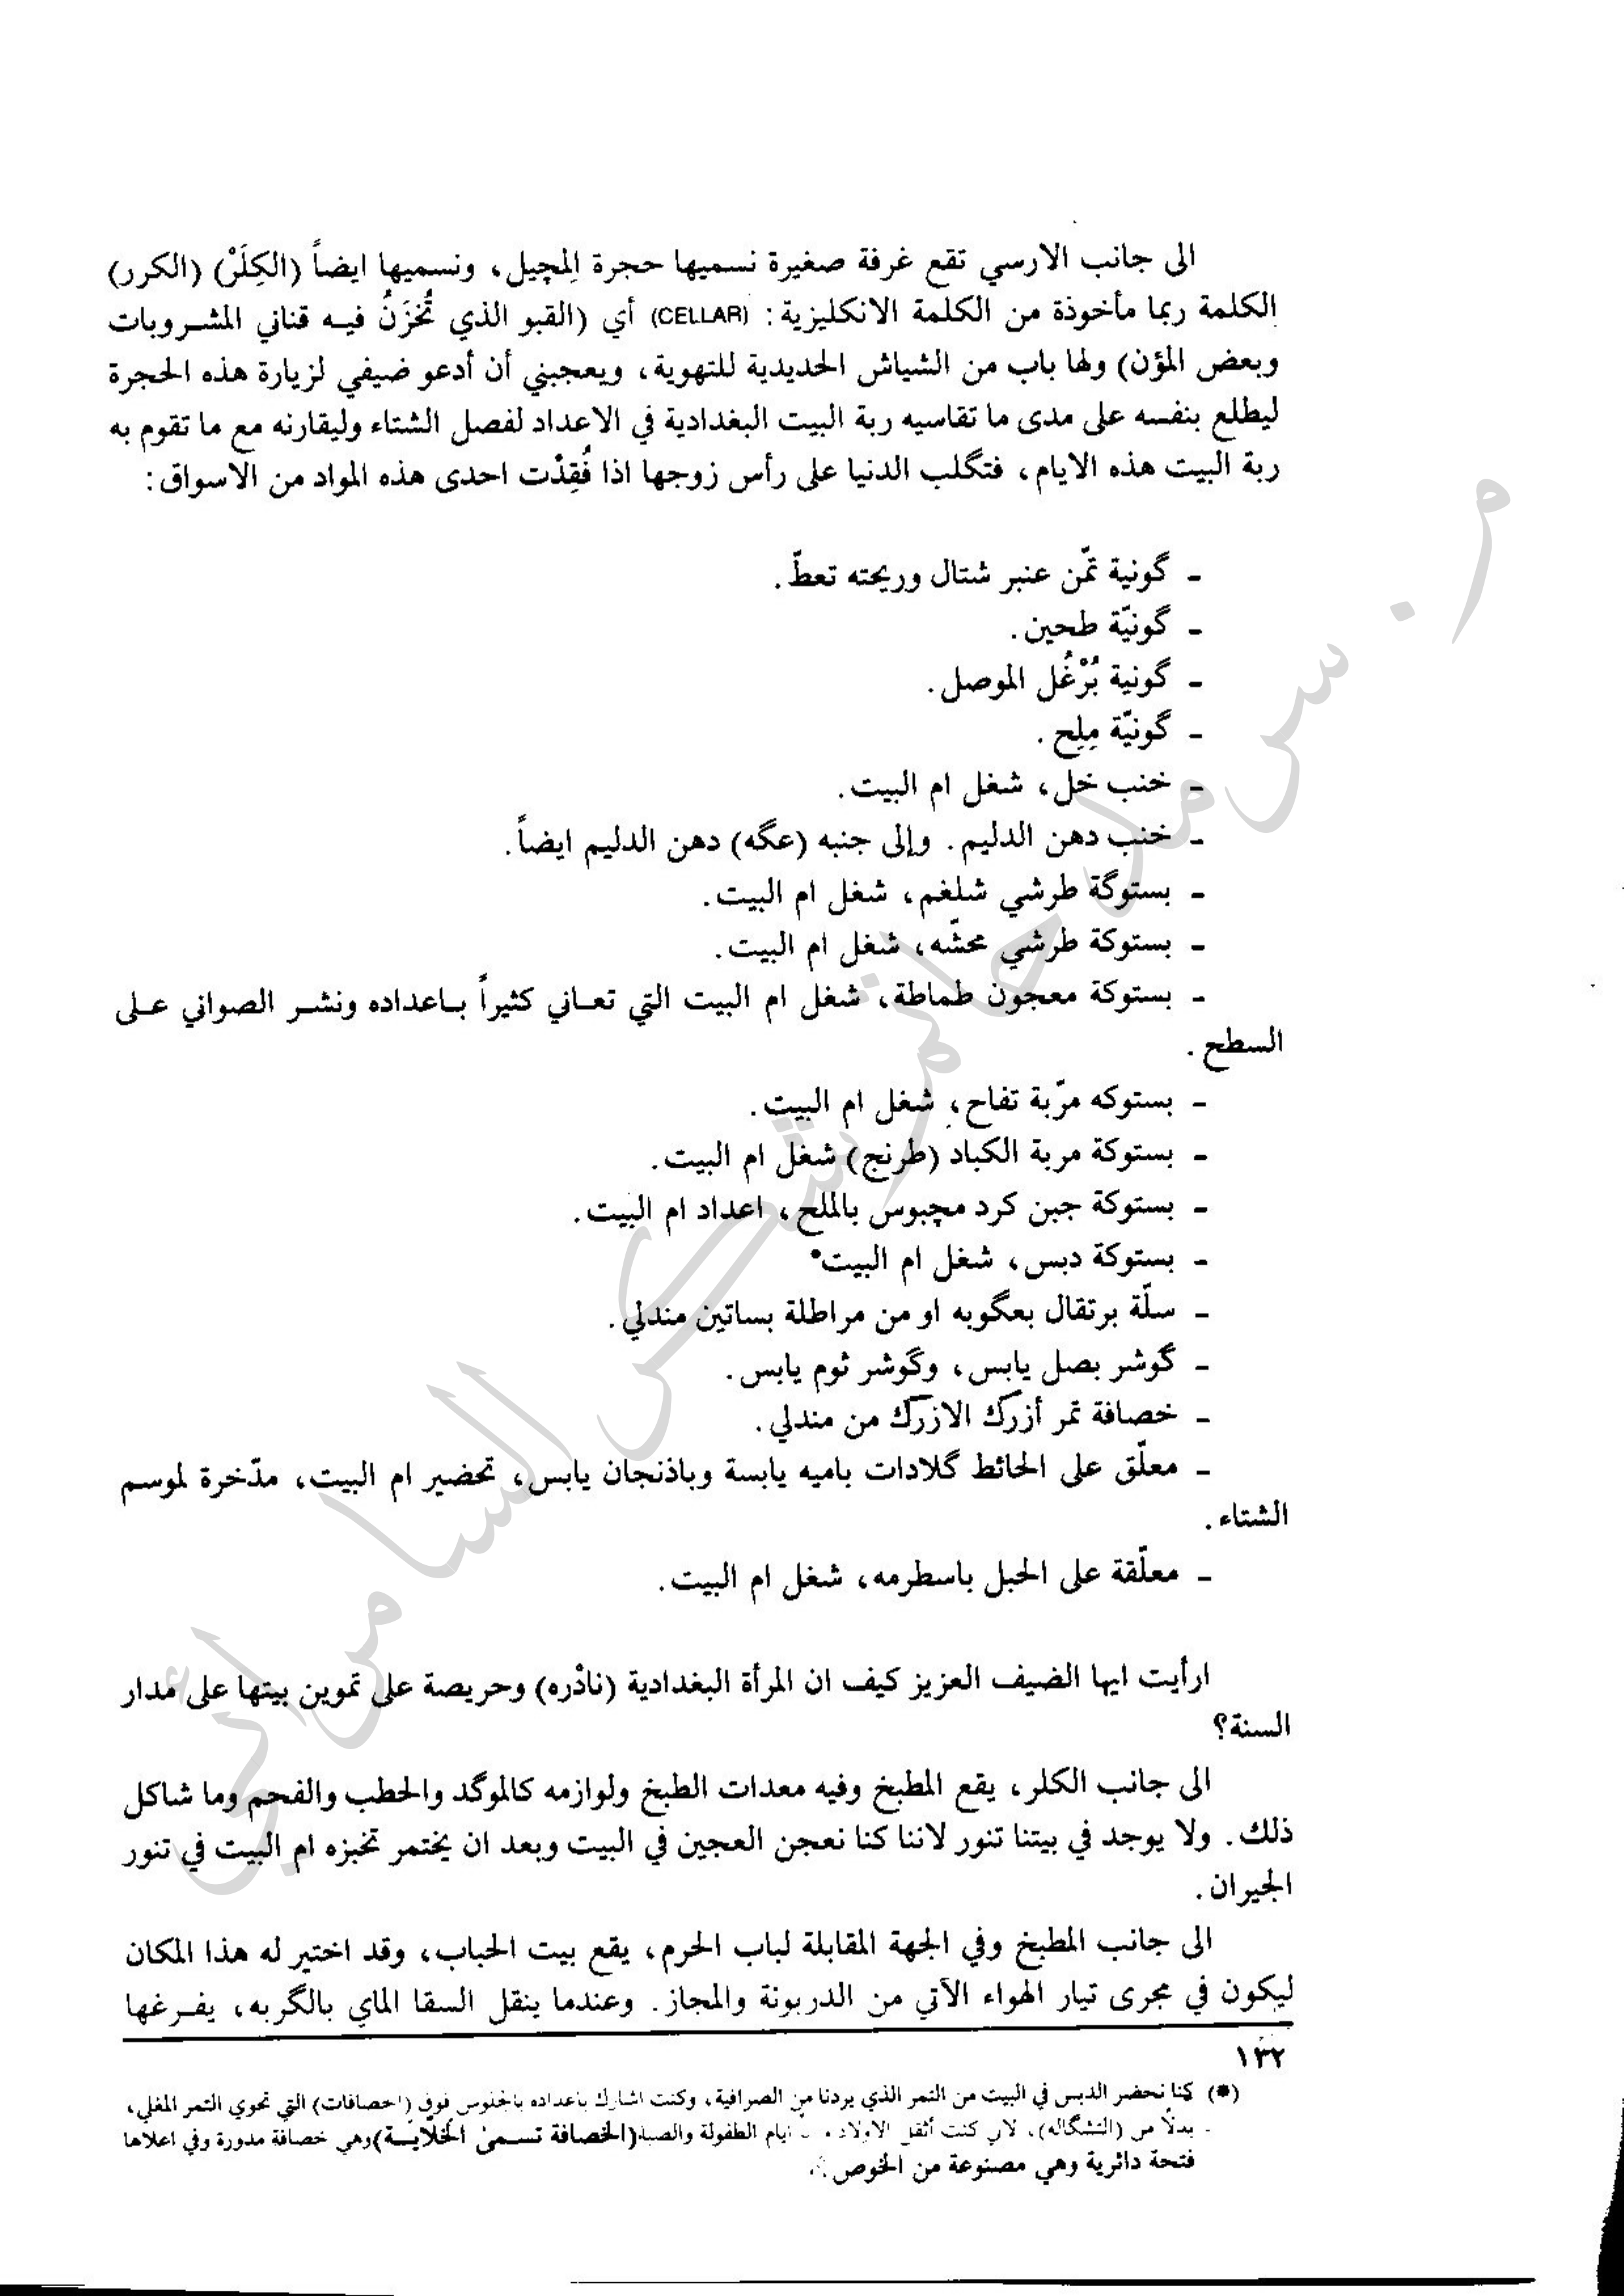 الى جانب الارسي تقع غرفة صغيرة نسميها حجرة اِلمچيل، ونسميها ايضاً (الكِلَرْ) (الكرر)
الكلمة ربما مأخوذة من الكلمة الانكليزية: (CELLAR) أي (القبو الذي تُخزَنُ فيه قناني المشروبات
وبعض المؤن) ولها باب من الشياش الحديدية للتهوية، ويعجبني أن أدعو ضيفي لزيارة هذه الحجرة
ليطلع بنفسه على مدى ما تقاسيه ربة البيت البغدادية في الاعداد لفصل الشتاء وليقارنه مع ما تقوم به
ربة البيت هذه الايام، فتگلب الدنيا على رأس زوجها اذا فُقِدْت احدى هذه المواد من الاسواق:
- گونية تمّن عنبر شتال وريحته تعطّ.
- گونيّة طحين.
- گونية بُرْغُل الموصل.
- گونيّة مِلِح.
- خنب خل، شغل ام البيت.
- خنب دهن الدليم. وإلى جنبه (عگه) دهن الدليم ايضاً.
- بستوگة طرشي شلغم، شغل ام البيت.
- بستوكة طرشي محشّه، شغل ام البيت.
- بستوكة معجون طماطة، شغل ام البيت التي تعاني كثيراً باعداده ونشر الصواني على
السطح.
- بستوكه مرّبة تفاح، شغل ام البيت.
- بستوكة مربة الكباد (طرنج) شغل ام البيت.
- بستوكة جبن كرد مچبوس بالملح، اعداد ام البيت.
- بستوكة دبس، شغل ام البيت*
- سلّة برتقال بعگوبه او من مراطلة بساتين مندلي.
- گوشر بصل يابس، وگوشر ثوم يابس.
- خصافة تمر أزرگ الازرگ من مندلي.
- معلّق على الحائط گلادات باميه يابسة وباذنجان يابس، تحضير ام البيت، مدّخرة لموسم
الشتاء.
- معلّقة على الحبل باسطرمه، شغل ام البيت.
ارأيت ايها الضيف العزيز كيف ان المرأة البغدادية (نادْره) وحريصة على تموين بيتها على مدار
السنة؟
الى جانب الكلر، يقع المطبخ وفيه معدات الطبخ ولوازمه كالموگد والحطب والفحم وما شاكل
ذلك. ولا يوجد في بيتنا تنور لاننا كنا نعجن العجين في البيت وبعد ان يختمر تخبزه ام البيت في تنور
الجيران.
الى جانب المطبخ وفي الجهة المقابلة لباب الحرم، يقع بيت الحباب، وقد اختير له هذا المكان
ليكون في مجرى تيار الهواء الآتي من الدربونة والمجاز. وعندما ينقل السقا الماي بالگربه، يفرغها
١٣٢
(*) كنا نحضر الدبس في البيت من التمر الذي يردنا من الصرافية، وكنت اشارك باعداده بالجلوس فوق (الخصافات) التي تحوي التمر المغلي،
بدلًا من (الثگاله)، لاني كنت أثقل الاولاد ايام الطفولة والصبا (الخصافة تسمى الخلّابة) وهي خصافة مدورة وفي اعلاها
فتحة دائرية وهي مصنوعة من الخوص.
م. سرمد حاتم شكر السامرائي